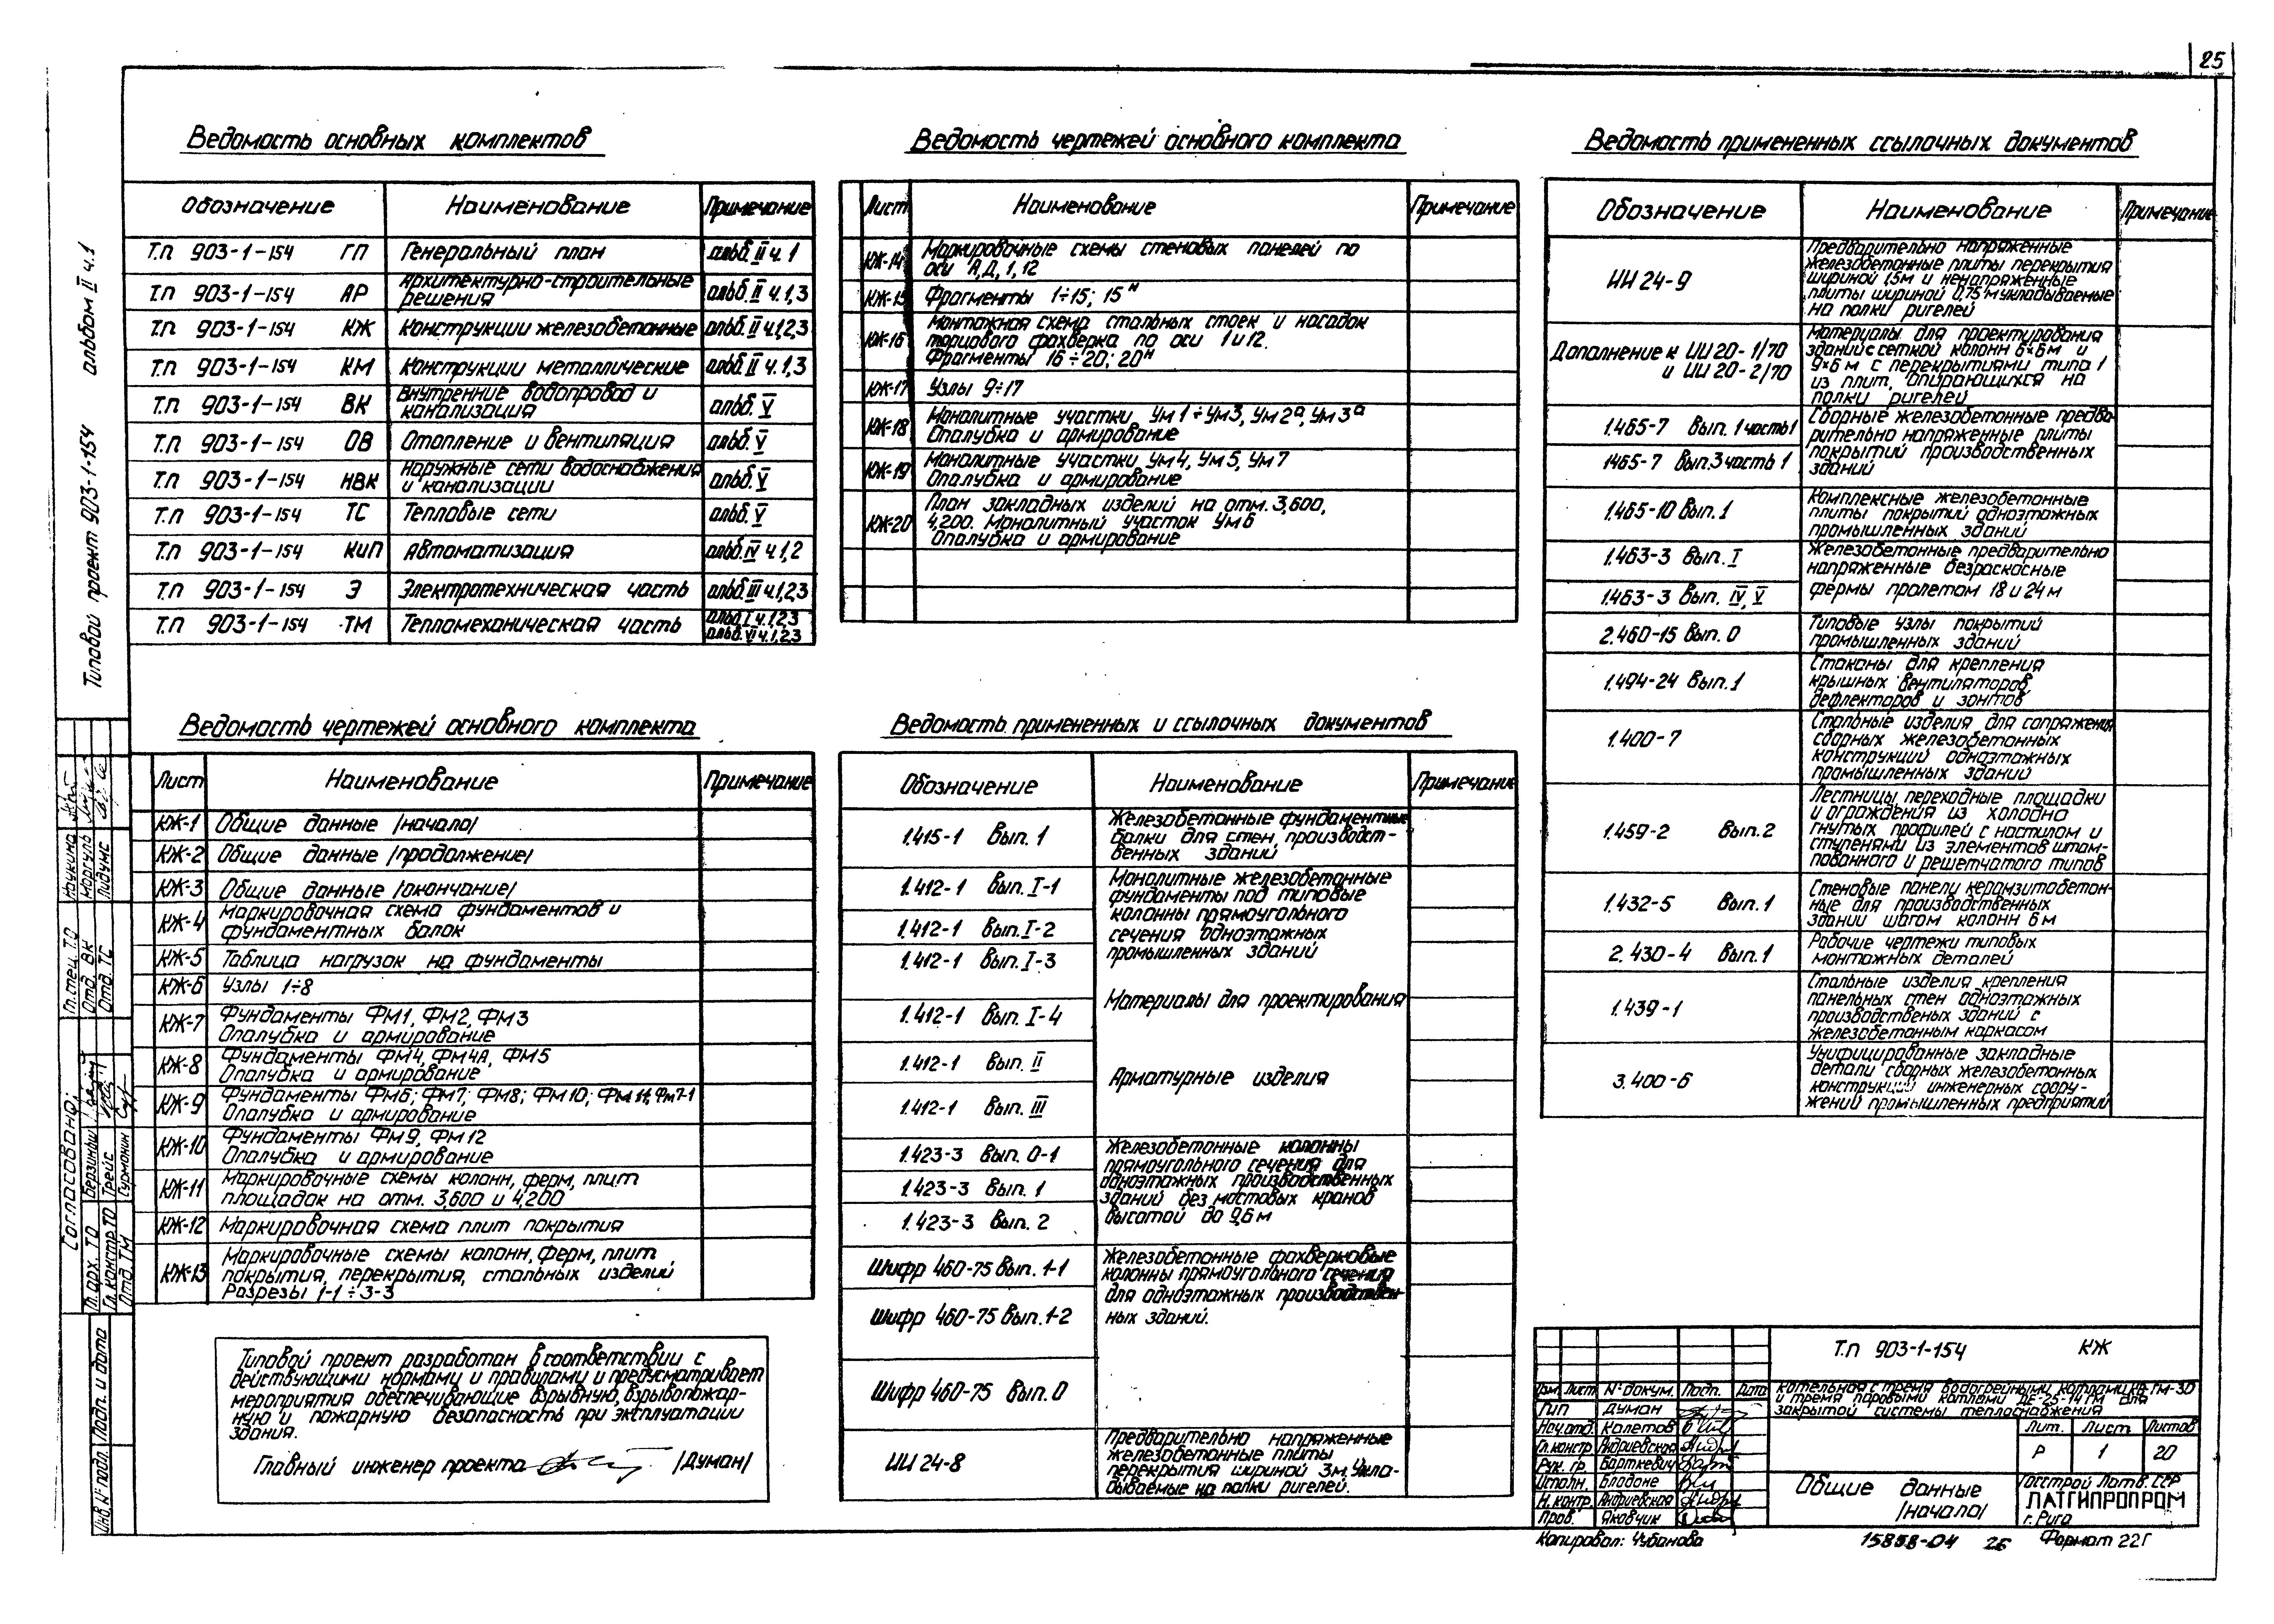 25
Ведомость основных комплектов
Обозначение Наименование Примечание
Т.п 903-1-154 ГП Генеральный план альб. II ч.1
Т.п 903-1-154 АР Архитектурно-строительные
решения альб. II ч.1,3
Т.п 903-1-154 КЖ Конструкции железобетонные альб. II ч.1,2,3
Т.п 903-1-154 КМ Конструкции металлические альб. II ч.1,3
Т.п 903-1-154 ВК Внутренние водопровод и
канализация альб. V
Т.п 903-1-154 ОВ Отопление и вентиляция альб. V
Т.п 903-1-154 НВК Наружные сети водоснабжения
и канализации альб. V
Т.п 903-1-154 ТС Тепловые сети альб. V
Т.п 903-1-154 КиП Автоматизация альб. IV ч.1,2
Т.п 903-1-154 Э Электротехническая часть альб. III ч.1,2,3
Т.п 903-1-154 ТМ Тепломеханическая часть альб. I ч.1,2,3
альб. VI ч.1,2,3
Ведомость чертежей основного комплекта
Лист Наименование Примечание
КЖ-1 Общие данные /начало/
КЖ-2 Общие данные /продолжение/
КЖ-3 Общие данные /окончание/
КЖ-4 Маркировочная схема фундаментов и
фундаментных балок
КЖ-5 Таблица нагрузок на фундаменты
КЖ-6 Узлы 1÷8
КЖ-7 Фундаменты ФМ1, ФМ2, ФМ3
Опалубка и армирование
КЖ-8 Фундаменты ФМ4, ФМ4А, ФМ5
Опалубка и армирование
КЖ-9 Фундаменты ФМ6; ФМ7; ФМ8; ФМ10; ФМ11; Фм7-1
Опалубка и армирование
КЖ-10 Фундаменты ФМ9, ФМ12
Опалубка и армирование
КЖ-11 Маркировочные схемы колонн, ферм, плит
площадок на отм. 3,600 и 4,200
КЖ-12 Маркировочная схема плит покрытия
КЖ-13 Маркировочные схемы колонн, ферм, плит
покрытия, перекрытия, стальных изделий
Разрезы 1-1 ÷ 3-3
Типовой проект разработан в соответствии с
действующими нормами и правилами и предусматривает
мероприятия обеспечивающие взрывную, взрывопожар-
ную и пожарную безопасность при эксплуатации
здания.
Главный инженер проекта /Думан/
Ведомость чертежей основного комплекта
Лист Наименование Примечание
КЖ-14 Маркировочные схемы стеновых панелей по
оси А, Д, 1, 12
КЖ-15 Фрагменты 1÷15; 15н
КЖ-16 Монтажная схема стальных стоек и насадок
торцового фахверка по оси 1 и 12.
Фрагменты 16÷20; 20н
КЖ-17 Узлы 9÷17
КЖ-18 Монолитные участки Ум1÷Ум3, Ум2а, Ум3а
Опалубка и армирование
КЖ-19 Монолитные участки Ум4, Ум5, Ум7
Опалубка и армирование
КЖ-20 План закладных изделий на отм. 3,600,
4,200. Монолитный участок Ум6
Опалубка и армирование
Ведомость примененных и ссылочных документов
Обозначение Наименование Примечание
1.415-1 Вып. 1 Железобетонные фундаментные
балки для стен производст-
венных зданий
1.412-1 Вып. I-1 Монолитные железобетонные
фундаменты под типовые
1.412-1 Вып. I-2 колонны прямоугольного
сечения одноэтажных
1.412-1 Вып. I-3 промышленных зданий
Материалы для проектирования
1.412-1 Вып. I-4
1.412-1 Вып. II
Арматурные изделия
1.412-1 Вып. III
1.423-3 Вып. 0-1 Железобетонные колонны
прямоугольного сечения для
1.423-3 Вып. 1 одноэтажных производственных
зданий без мостовых кранов
1.423-3 Вып. 2 высотой до 9,6 м
Шифр 460-75 Вып. 1-1 Железобетонные фахверковые
колонны прямоугольного сечения
для одноэтажных производствен-
Шифр 460-75 Вып. 1-2 ных зданий.
Шифр 460-75 Вып. 0
ИИ 24-8 Предварительно напряженные
железобетонные плиты
перекрытия шириной 3м. Укла-
дываемые на полки ригелей.
Ведомость примененных ссылочных документов
Обозначение Наименование Примечание
ИИ 24-9 Предварительно напряженные
железобетонные плиты перекрытия
шириной 1,5м и ненапряженные
плиты шириной 0,75м укладываемые
на полки ригелей
Дополнение к ИИ 20-1/70
и ИИ 20-2/70 Материалы для проектирования
зданий с сеткой колонн 6×6м и
9×6 м с перекрытиями типа 1
из плит, опирающихся на
полки ригелей
1.465-7 Вып. 1 часть 1 Сборные железобетонные предва-
рительно напряженные плиты
1.465-7 Вып. 3 часть 1 покрытий производственных
зданий
1.465-10 Вып. 1 Комплексные железобетонные
плиты покрытий одноэтажных
промышленных зданий
1.463-3 Вып. I Железобетонные предварительно
напряженные безраскосные
1.463-3 Вып. IV, V фермы пролетом 18 и 24 м
2.460-15 Вып. 0 Типовые узлы покрытий
промышленных зданий
1.494-24 Вып. 1 Стаканы для крепления
крышных вентиляторов,
дефлекторов и зонтов
1.400-7 Стальные изделия для сопряжения
сборных железобетонных
конструкций одноэтажных
промышленных зданий
1.459-2 Вып. 2 Лестницы, переходные площадки
и ограждения из холодно
гнутых профилей с настилом и
ступенями из элементов штам-
пованного и решетчатого типов
1.432-5 Вып. 1 Стеновые панели керамзитобетон-
ные для производственных
зданий шагом колонн 6 м
2.430-4 Вып. 1 Рабочие чертежи типовых
монтажных деталей
1.439-1 Стальные изделия крепления
панельных стен одноэтажных
производственых зданий с
железобетонным каркасом
3.400-6 Унифицированные закладные
детали сборных железобетонных
конструкций инженерных соору-
жений промышленных предприятий
Т.п 903-1-154 КЖ
Изм. Лист № докум. Подп. Дата
Котельная с тремя водогрейными котлами КВ-ГМ-30
и тремя паровыми котлами ДЕ-25-14ГМ для
закрытой системы теплоснабжения
Гип Думан
Нач.отд. Калетов
Гл.констр. Андриевская
Рук. гр. Барткевич
Исполн. Бладоне
Н. контр. Андриевская
Пров. Яковчик
Лит. Лист Листов
Р 1 20
Общие данные
/начало/
Госстрой Латв. ССР
ЛАТГИПРОПРОМ
г. Рига
Копировал: Чубанова
15858-04 26 Формат 22Г
Типовой проект 903-1-154 альбом II ч.1
Согласовано:
Гл. спец. ТО Наукина
Отд. ВК Моргуль
Отд. ТС Лидумс
Гл. арх. ТО Берзиньш
Гл. констр. ТО Трейс
Отд. ТМ Сурмонин
Инв. № подл. Подп. и дата